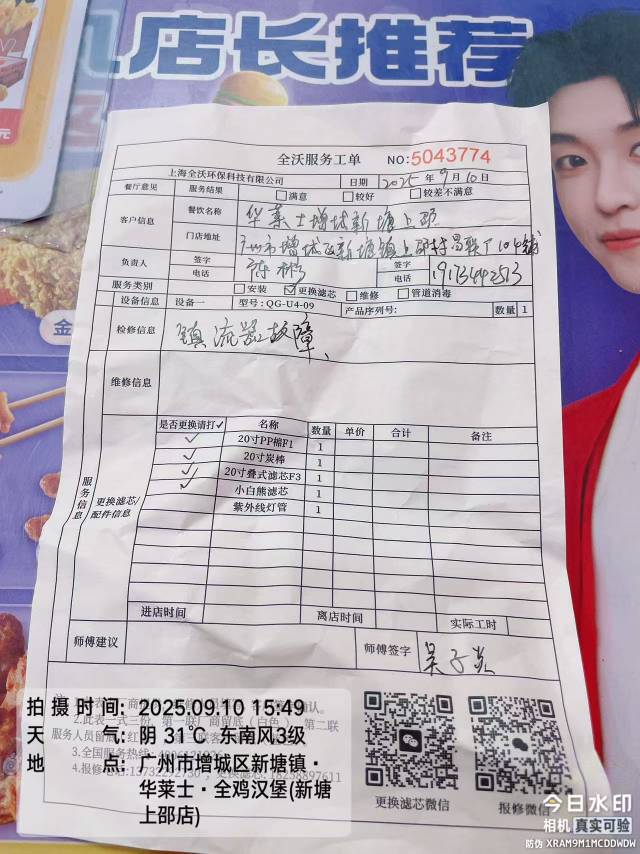 店长推荐
全沃服务工单 NO:5043774
上海全沃环保科技有限公司 日期 2025年9月10日
餐厅意见 服务结果 □满意 □较好 □较差不满意
客户信息 餐饮名称 华莱士增城新塘上邵
门店地址 广州市增城区新塘镇上邵村
负责人 签字 陈彬 签字
电话 电话
服务类别 □安装 ☑更换滤芯 □维修 □管道消毒
设备信息 设备一 型号:QG-U4-09 产品序列号: 数量 1
检修信息 镇流器故障、
维修信息
服务信息
更换滤芯/配件信息
是否更换请打✓ 名称 数量 单价 合计 备注
✓ 20寸PP棉F1 1
✓ 20寸炭棒 1
✓ 20寸叠式滤芯F3 1
✓ 小白熊滤芯 1
紫外线灯管 1
进店时间 离店时间 实际工时
师傅建议 师傅签字
2.此表一式三份，第一联厂商留底（白色），第二联
服务人员留
3.全国服务热线:
4.报修电话:
更换滤芯微信 报修微信
拍摄时间: 2025.09.10 15:49
天气: 阴 31℃ 东南风3级
地点: 广州市增城区新塘镇·
华莱士·全鸡汉堡(新塘
上邵店)
今日水印
相机 真实可验
防伪 XRAM9M1MCDDWDW